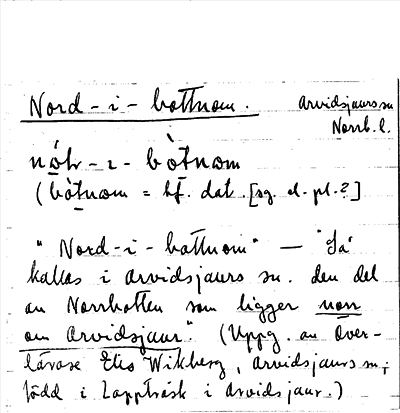 Nord-i-bottnom. Arvidsjaurs sn
Norrb. l.
nó̠ḷr-ɩ-bòt̠nɷm
(bòt̠nɷm = bf. dat. [sg. el. pl.?]
"Nord-i-bottnom" — "Så
kallas i Arvidsjaurs sn. den del
av Norrbotten som ligger norr
om Arvidsjaur." (Uppg. av Över-
lärare Elis Wikberg, Arvidsjaurs sn,
född i Lappträsk i Arvidsjaur.)